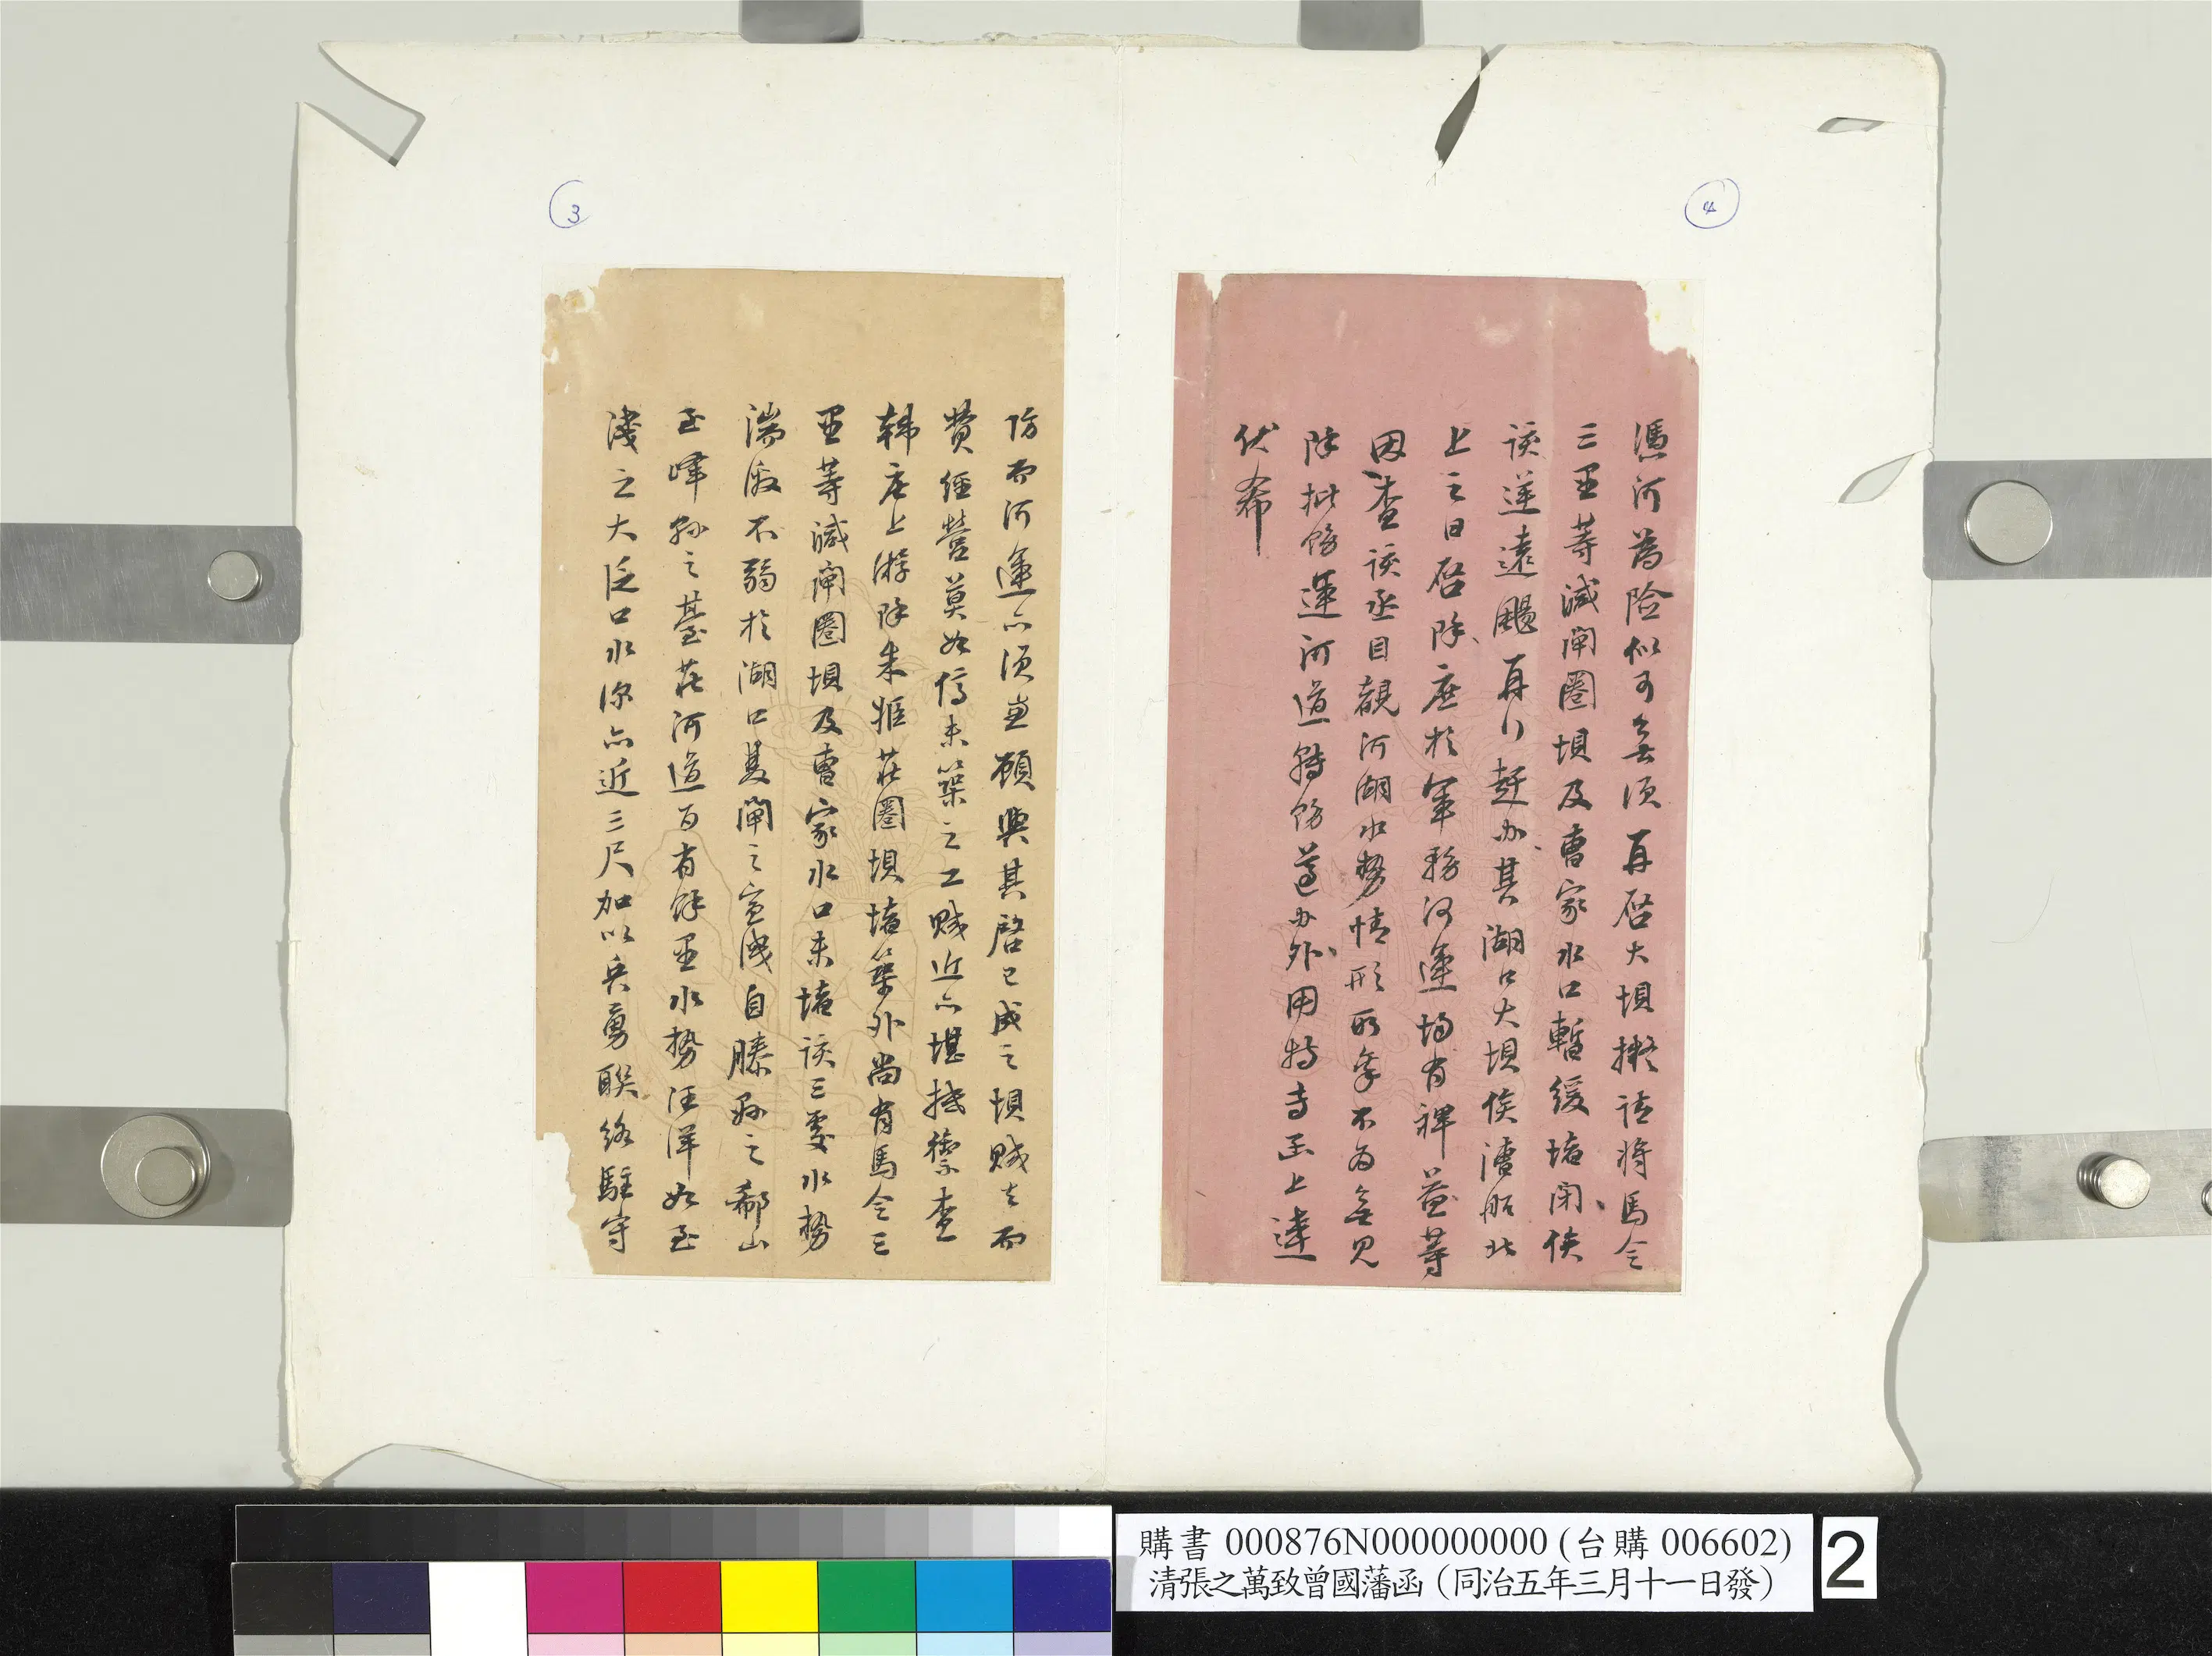 3
防而河運亦須兼顧與其啓已成之壩賊去而
費經營莫如停未築之工賊近亦堪抵禦查
韓庄上游除朱姬莊圈壩堵築外尚有馬令三
里等減閘圈壩及曹家水口未堵該三處水勢
湍激不弱於湖口雙閘之宣洩自滕縣之郗山
至嶧縣之臺莊河道百有餘里水勢汪洋如至
淺之大泛口水深亦近三尺加以兵勇聯絡駐守
4
憑河為險似可無須再啓大壩擬請將馬令
三里等減閘圈壩及曹家水口暫緩堵閉、俟
該逆遠颺再行趕办、其湖口大壩俟漕船北
上之日啓除、庶於軍務河運均有裨益等
因、查該丞目覩河湖水勢情形所稟不為無見
除批飭運河道轉飭遵办外、用特專函上達
伏希
購書 000876N000000000 (台購 006602)
清張之萬致曾國藩函（同治五年三月十一日發）
2